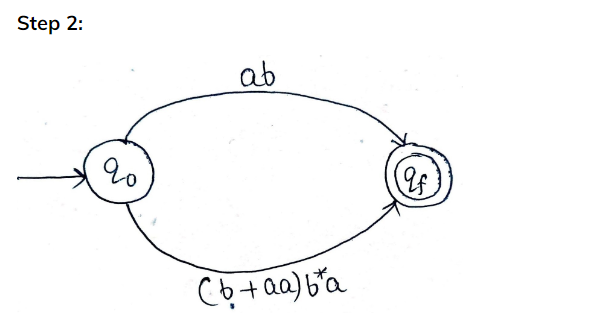 Step 2:
ab
q₀
qf
(b+aa)b*a